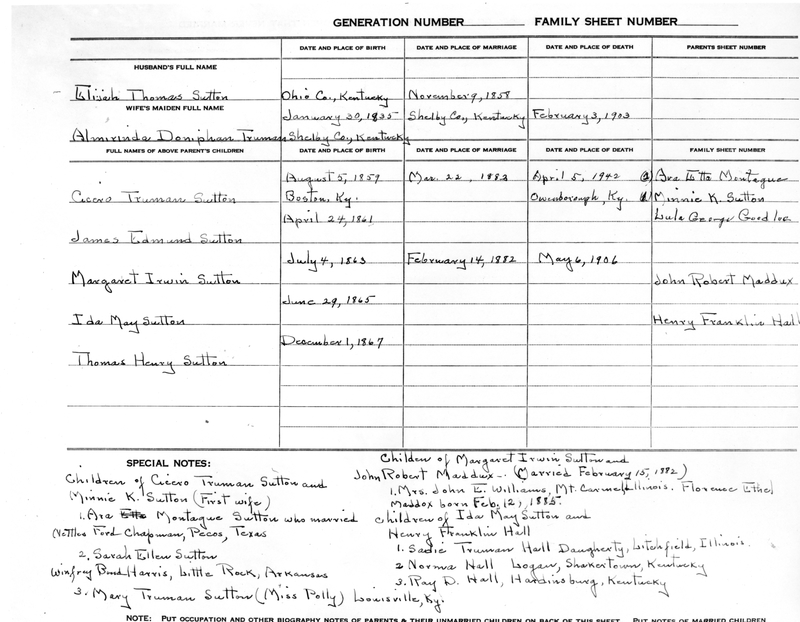 GENERATION NUMBER FAMILY SHEET NUMBER
DATE AND PLACE OF BIRTH DATE AND PLACE OF MARRIAGE DATE AND PLACE OF DEATH PARENTS SHEET NUMBER
HUSBAND'S FULL NAME
Elijah Thomas Sutton Ohio Co., Kentucky November 9, 1858
WIFE'S MAIDEN FULL NAME January 30, 1835 Shelby Co., Kentucky February 3, 1903
Almirinda Doniphan Truman Shelby Co., Kentucky
FULL NAMES OF ABOVE PARENT'S CHILDREN DATE AND PLACE OF BIRTH DATE AND PLACE OF MARRIAGE DATE AND PLACE OF DEATH FAMILY SHEET NUMBER
August 5, 1859 Mar. 22, 1883 April 5, 1942 (2) Ara Etta Montague
Cicero Truman Sutton Boston, Ky. Owensborough, Ky. (1) Minnie K. Sutton
April 24, 1861 Lula George Goodloe
James Edmund Sutton
July 4, 1863 February 14, 1882 May 6, 1906
Margaret Irwin Sutton John Robert Maddux
June 29, 1865
Ida May Sutton Henry Franklin Hall
December 1, 1867
Thomas Henry Sutton
SPECIAL NOTES:
Children of Cicero Truman Sutton and
Minnie K. Sutton (First wife)
1. Ara Etta Montague Sutton who married
Nettles Ford Chapman, Pecos, Texas
2. Sarah Ellen Sutton
Winfrey Harris, Little Rock, Arkansas
3. Mary Truman Sutton (Miss Polly) Louisville, Ky.
Children of Margaret Irwin Sutton and
John Robert Maddux -- (Married February 15, 1882)
1. Mrs. John E. Williams, Mt. Carmel, Illinois. Florence Ethel
Maddox born Feb. 12, 1885.
Children of Ida May Sutton and
Henry Franklin Hall
1. Sadie Truman Hall Daugherty, Litchfield, Illinois.
2 Norma Hall Logan, Shakertown, Kentucky
3. Ray D. Hall, Hardinsburg, Kentucky
NOTE: PUT OCCUPATION AND OTHER BIOGRAPHY NOTES OF PARENTS & THEIR UNMARRIED CHILDREN ON BACK OF THIS SHEET PUT NOTES OF MARRIED CHILDREN